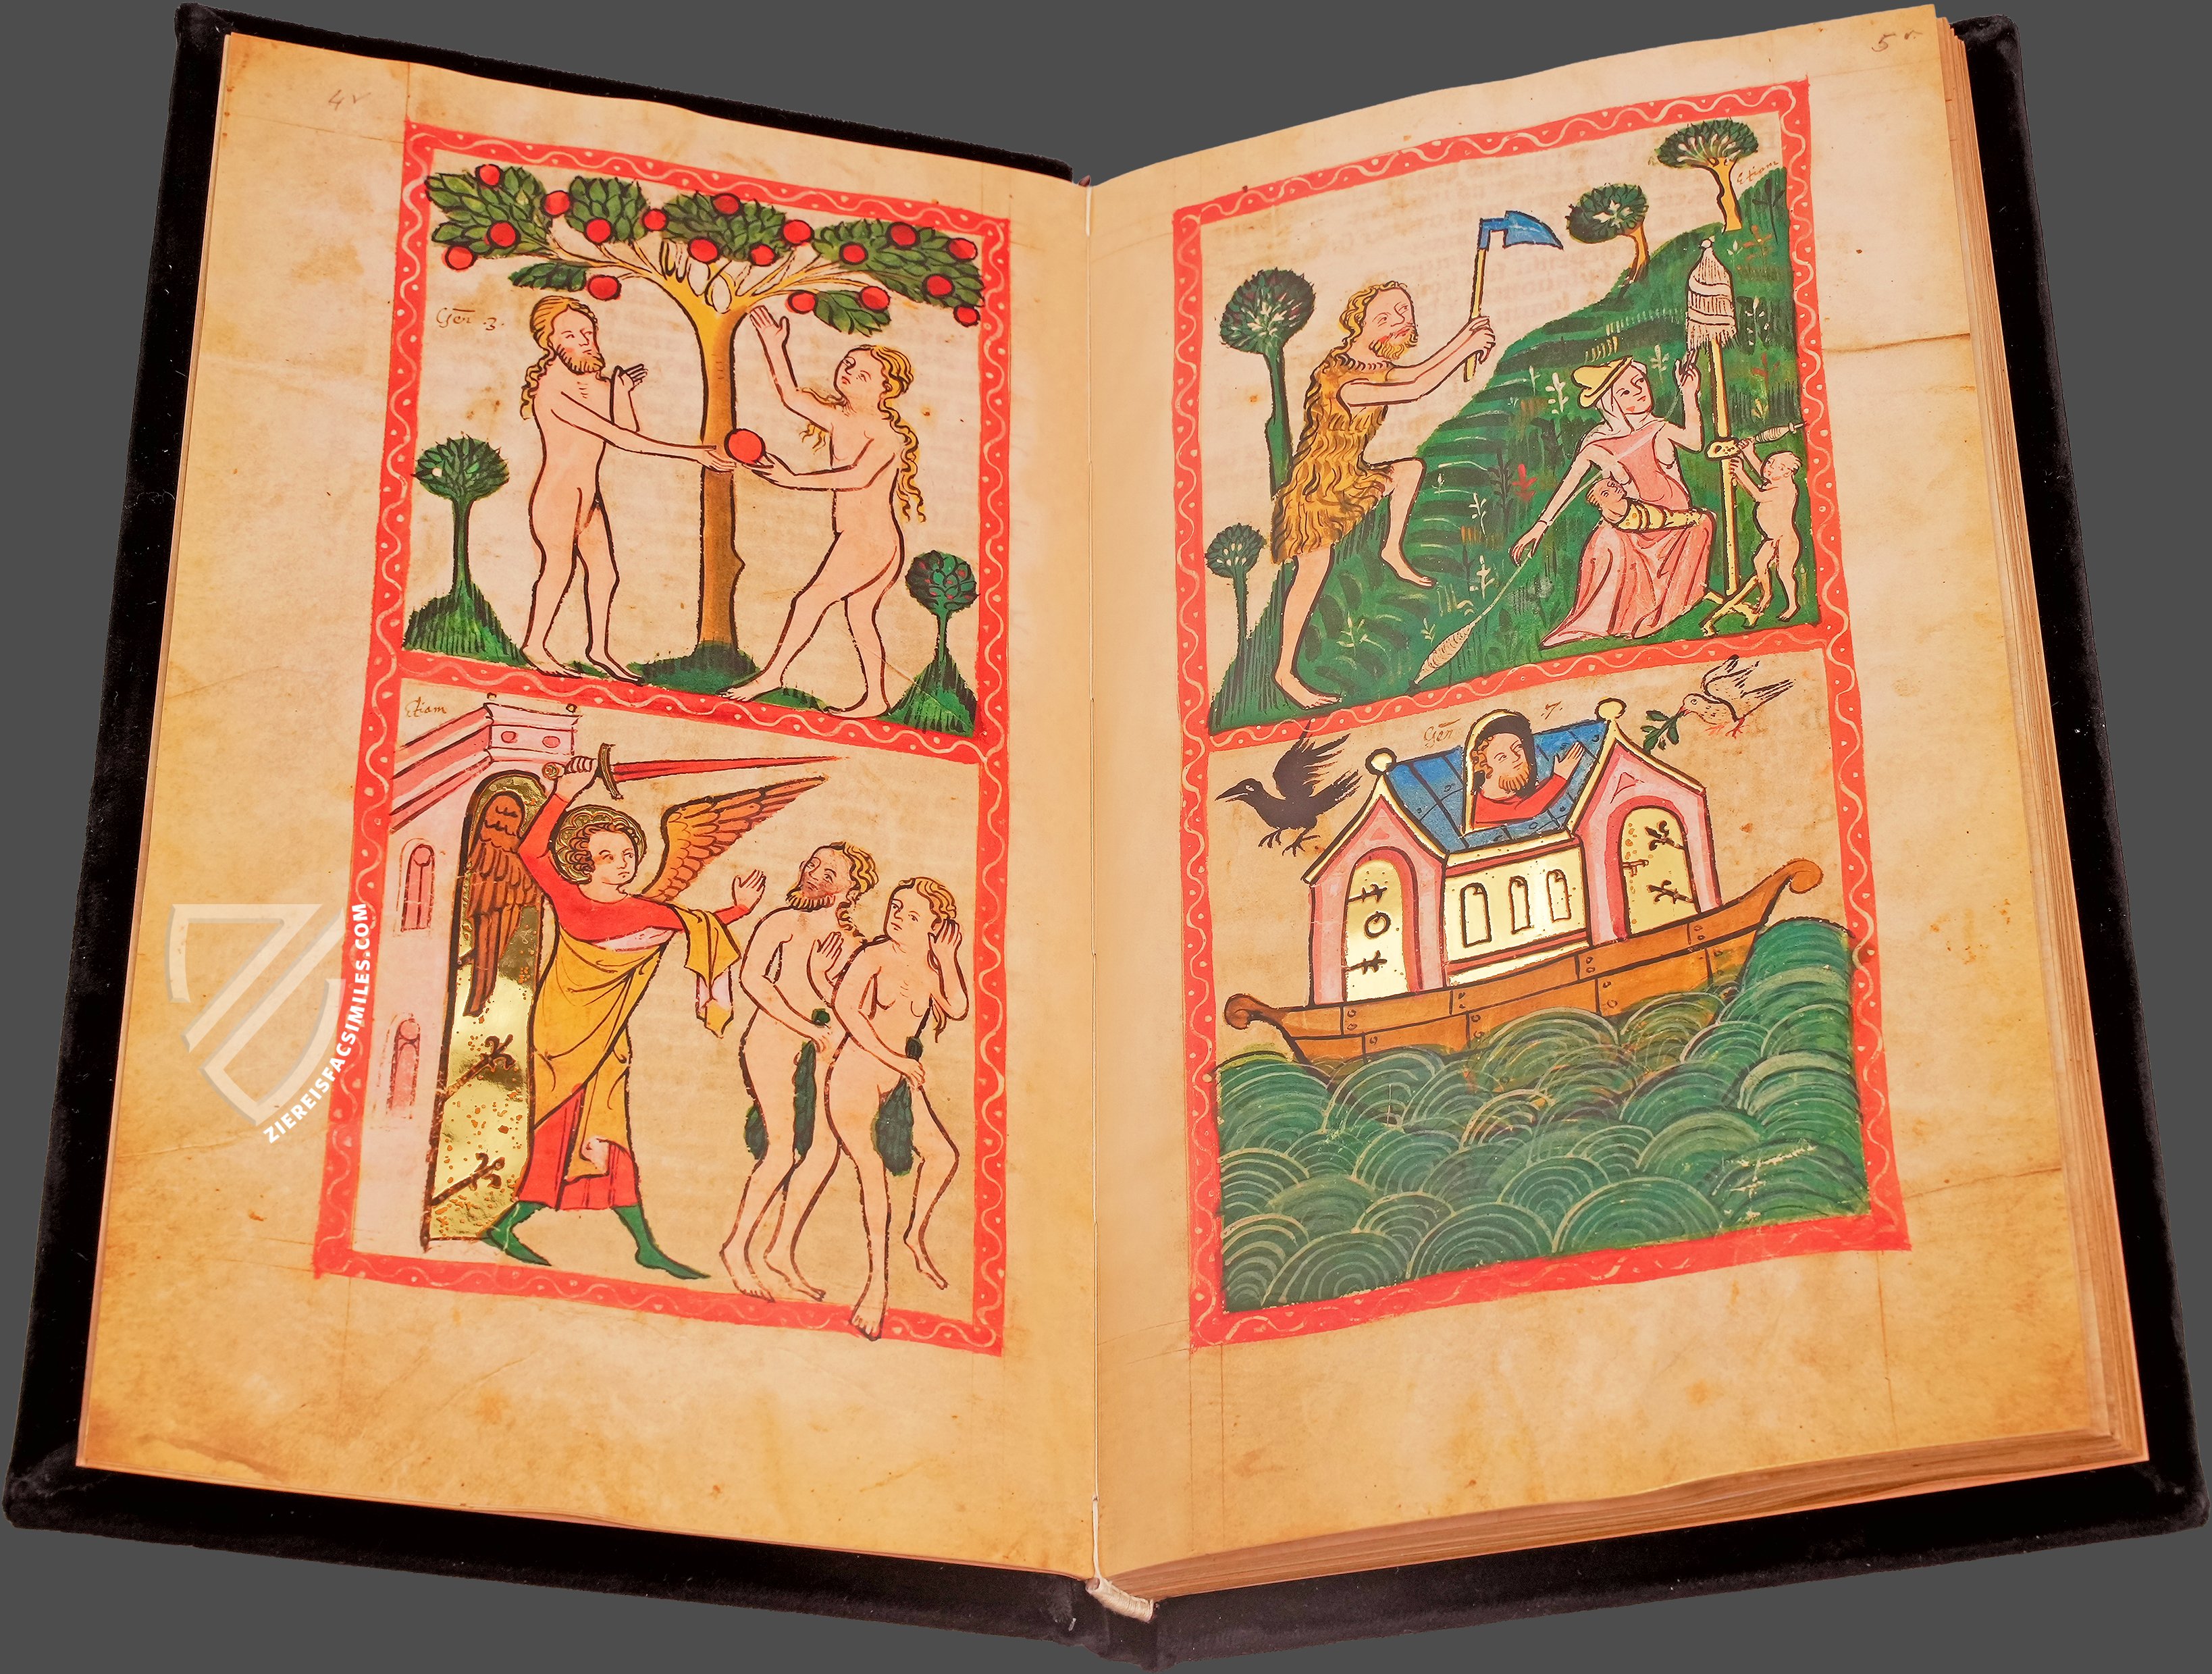 4v
Gen̄ 3.
Etiam
ZIEREISFACSIMILES.COM
5r.
Etiam
Gen̄ 7.